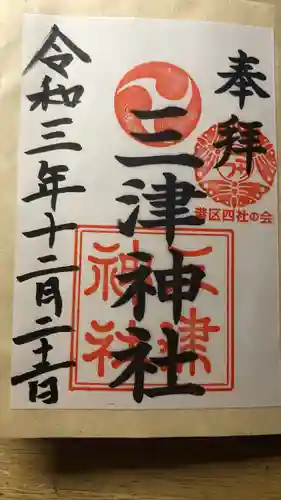 奉拝
港区四社の会
三津神社
三津神社
令和三年十二月二十五日